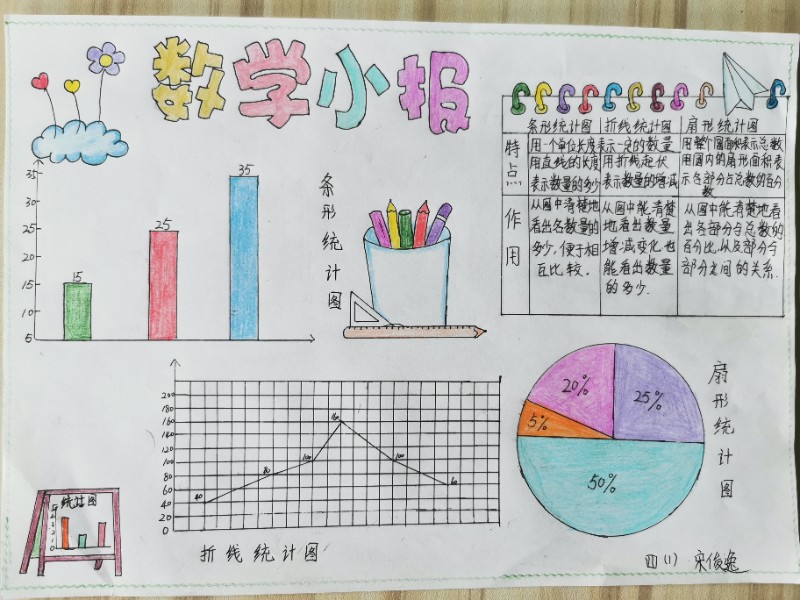 数学小报
条形统计图 折线统计图 扇形统计图
特点
用一个单位长度表示一定的数量
用直线的长度
表示数量的多少
用折线起伏
表示数量的增减
用整个圆面积表示总数
用圆内的扇形面积表
示各部分占总数的百分
数
作用
从图中清楚地
看出各数量的
多少，便于相
互比较．
从图中能清楚
地看出数量
增减变化，也
能看出数量
的多少．
从图中能清楚地看
出各部分与总数的
百分比，以及部分与
部分之间的关系．
35
30
25
20
15
10
5
15
25
35
条形统计图
200
180
160
140
120
100
80
60
40
20
0
40
80
100
160
100
折线统计图
20%
25%
5%
50%
扇形统计图
统计图
四(1) 宋俊逸